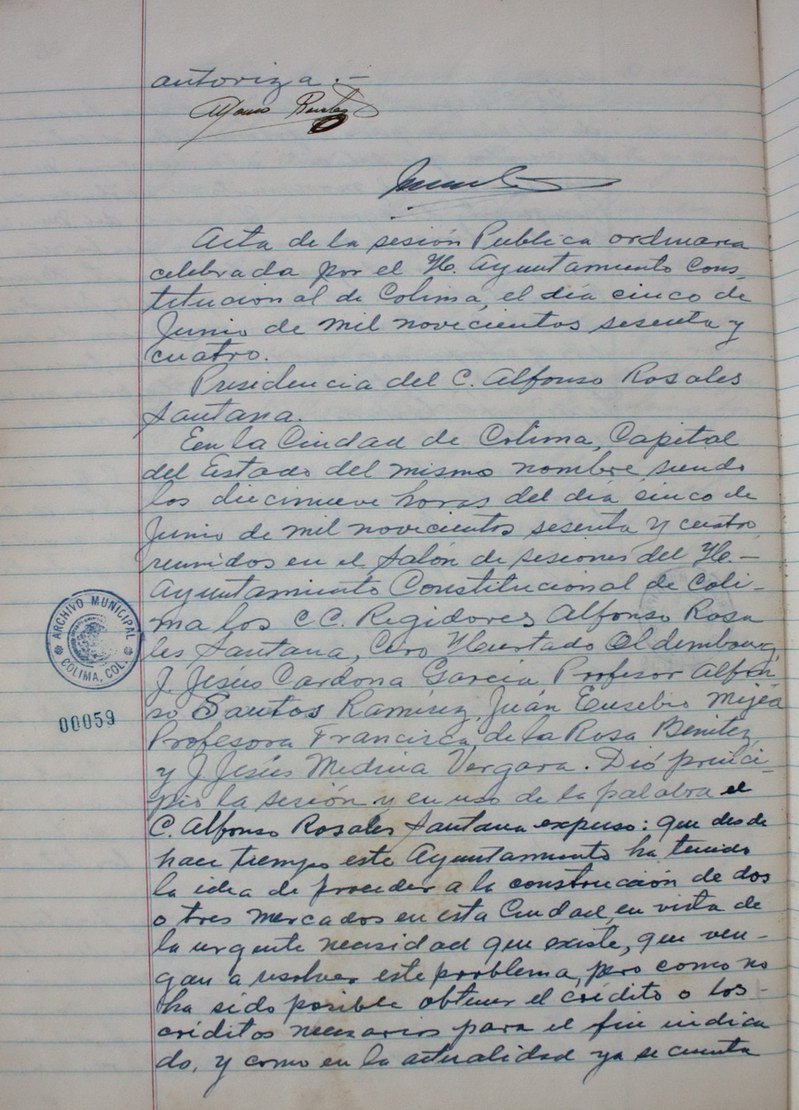 autoriza.-
Acta de la sesión Publica ordinaria
celebrada por el H. Ayuntamiento Cons-
titucional de Colima, el día cinco de
Junio de mil novecientos sesenta y
cuatro.
Presidencia del C. Alfonso Rosales
Santana.
En la Ciudad de Colima, Capital
del Estado del mismo nombre siendo
las diecinueve horas del día cinco de
Junio de mil novecientos sesenta y cuatro
reunidos en el salón de sesiones del H.-
Ayuntamiento Constitucional de Coli-
ma los CC. Regidores Alfonso Rosa
les Santana, Ciro Hurtado Oldembourg,
J. Jesús Cardona Garcia Profesor Alfon
so Santos Ramírez, Juán Eusebio Mejía
Profesora Francisca de la Rosa Benitez
y J Jesús Medina Vergara. Dió princi-
pio la sesión y en uso de la palabra el
C. Alfonso Rosales Santana expuso: que desde
hace tiempo este Ayuntamiento ha tenido
la idea de proceder a la construcción de dos
o tres mercados en esta Ciudad, en vista de
la urgente necesidad que existe, que ven-
gan a resolver este problema, pero como no
ha sido posible obtener el crédito o los
créditos necesarios para el fin indica
do, y como en la actualidad ya se cuenta
ARCHIVO MUNICIPAL
COLIMA, COL.
00059